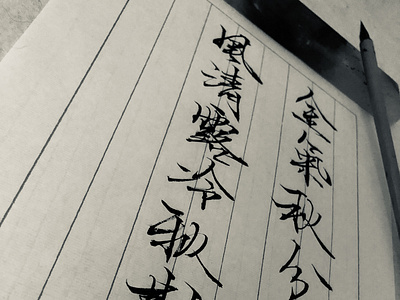 金氣秋分
風清露冷秋期